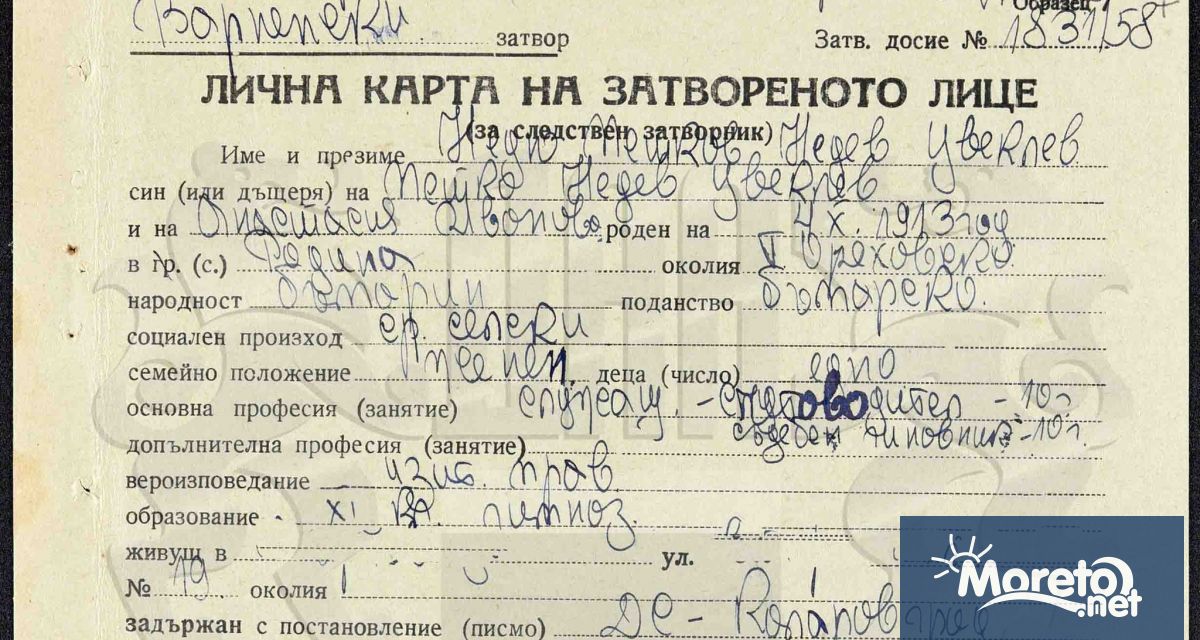 Варненски затвор
Образец 7
Затв. досие № 1831/58
ЛИЧНА КАРТА НА ЗАТВОРЕНОТО ЛИЦЕ
(за следствен затворник)
Име и презиме Недю Петков Недев Цвеклев
син (или дъщеря) на Петко Недев Цвеклев
и на Анастасия Иванова роден на 4 X. 1913 год
в гр. (с.) Родина околия Ореховско.
народност българин поданство българско.
социален произход ср. селски
семейно положение женен, деца (число) едно
основна професия (занятие) служащ. - счетоводител - 10 г.
допълнителна професия (занятие) съдебен чиновник - 10 г.
вероизповедание изт. прав.
образование - XI кл. гимназ.
живущ в ул.
№ 19 околия
задържан с постановление (писмо) ДС - Коларовград
Moreto
.net